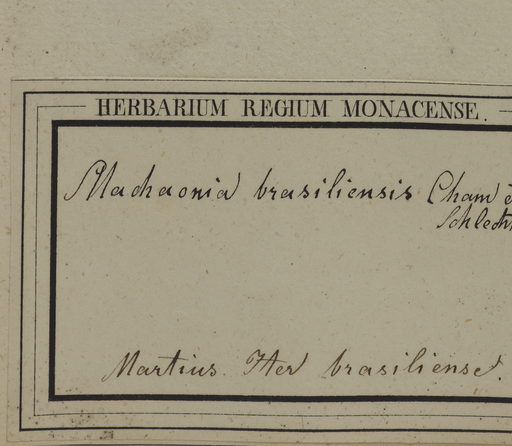 HERBARIUM REGIUM MONACENSE.
Machaonia brasiliensis Cham e
Schlecht
Martius. Iter brasiliense.